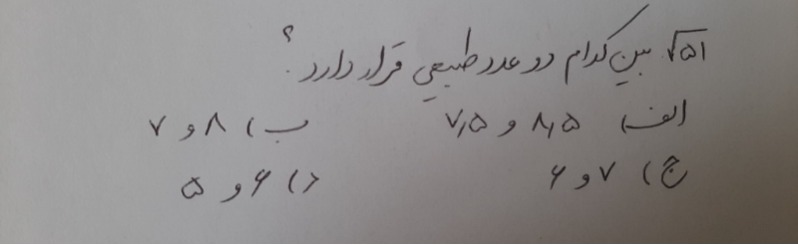 √۵۱ بین کدام دو عدد طبیعی قرار دارد؟
الف) ۸٫۵ و ۷٫۵ ب) ۸ و ۷
ج) ۷ و ۶ د) ۶ و ۵